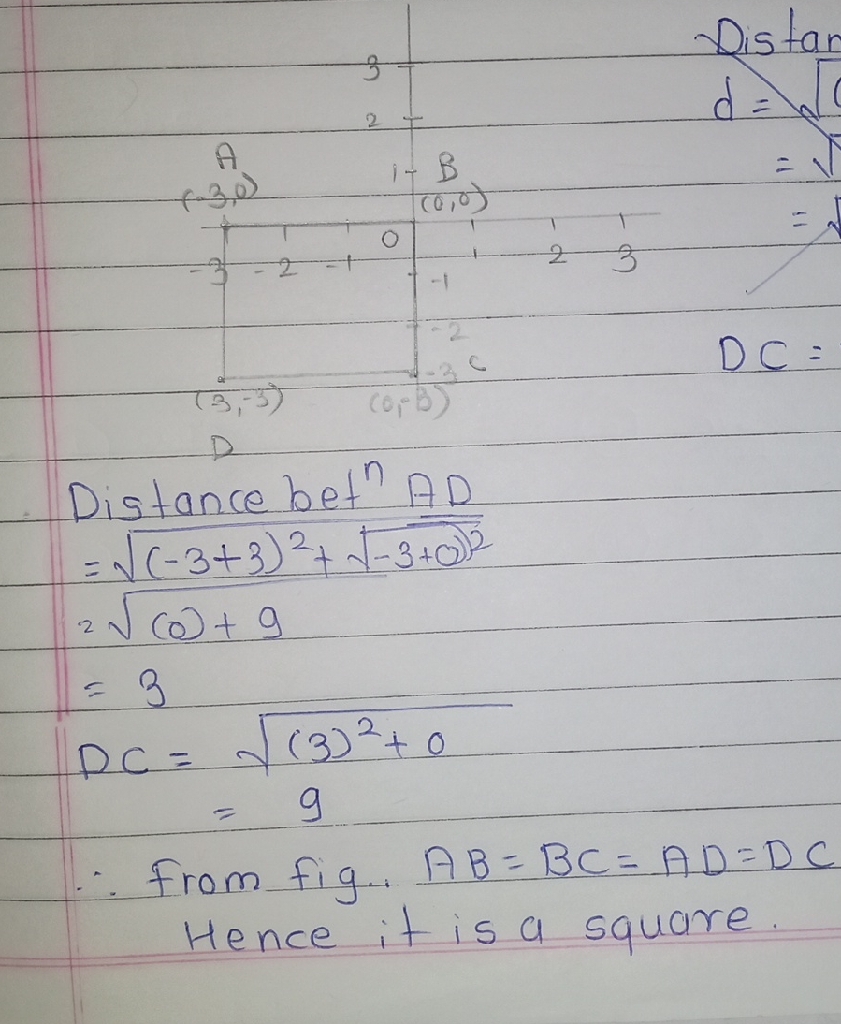 Distan
d = √(
= √
= √
DC =
3
2
1
A
(-3,0)
B
(0,0)
0
-3 -2 -1
1 2 3
-1
-2
-3 C
(3,-3)
(0,-3)
D
Distance betⁿ AD
= √(-3+3)² + √-3+0)²
= √(0) + 9
= 3
DC = √(3)² + 0
= 9
∴ from fig. AB = BC = AD = DC
Hence it is a square.